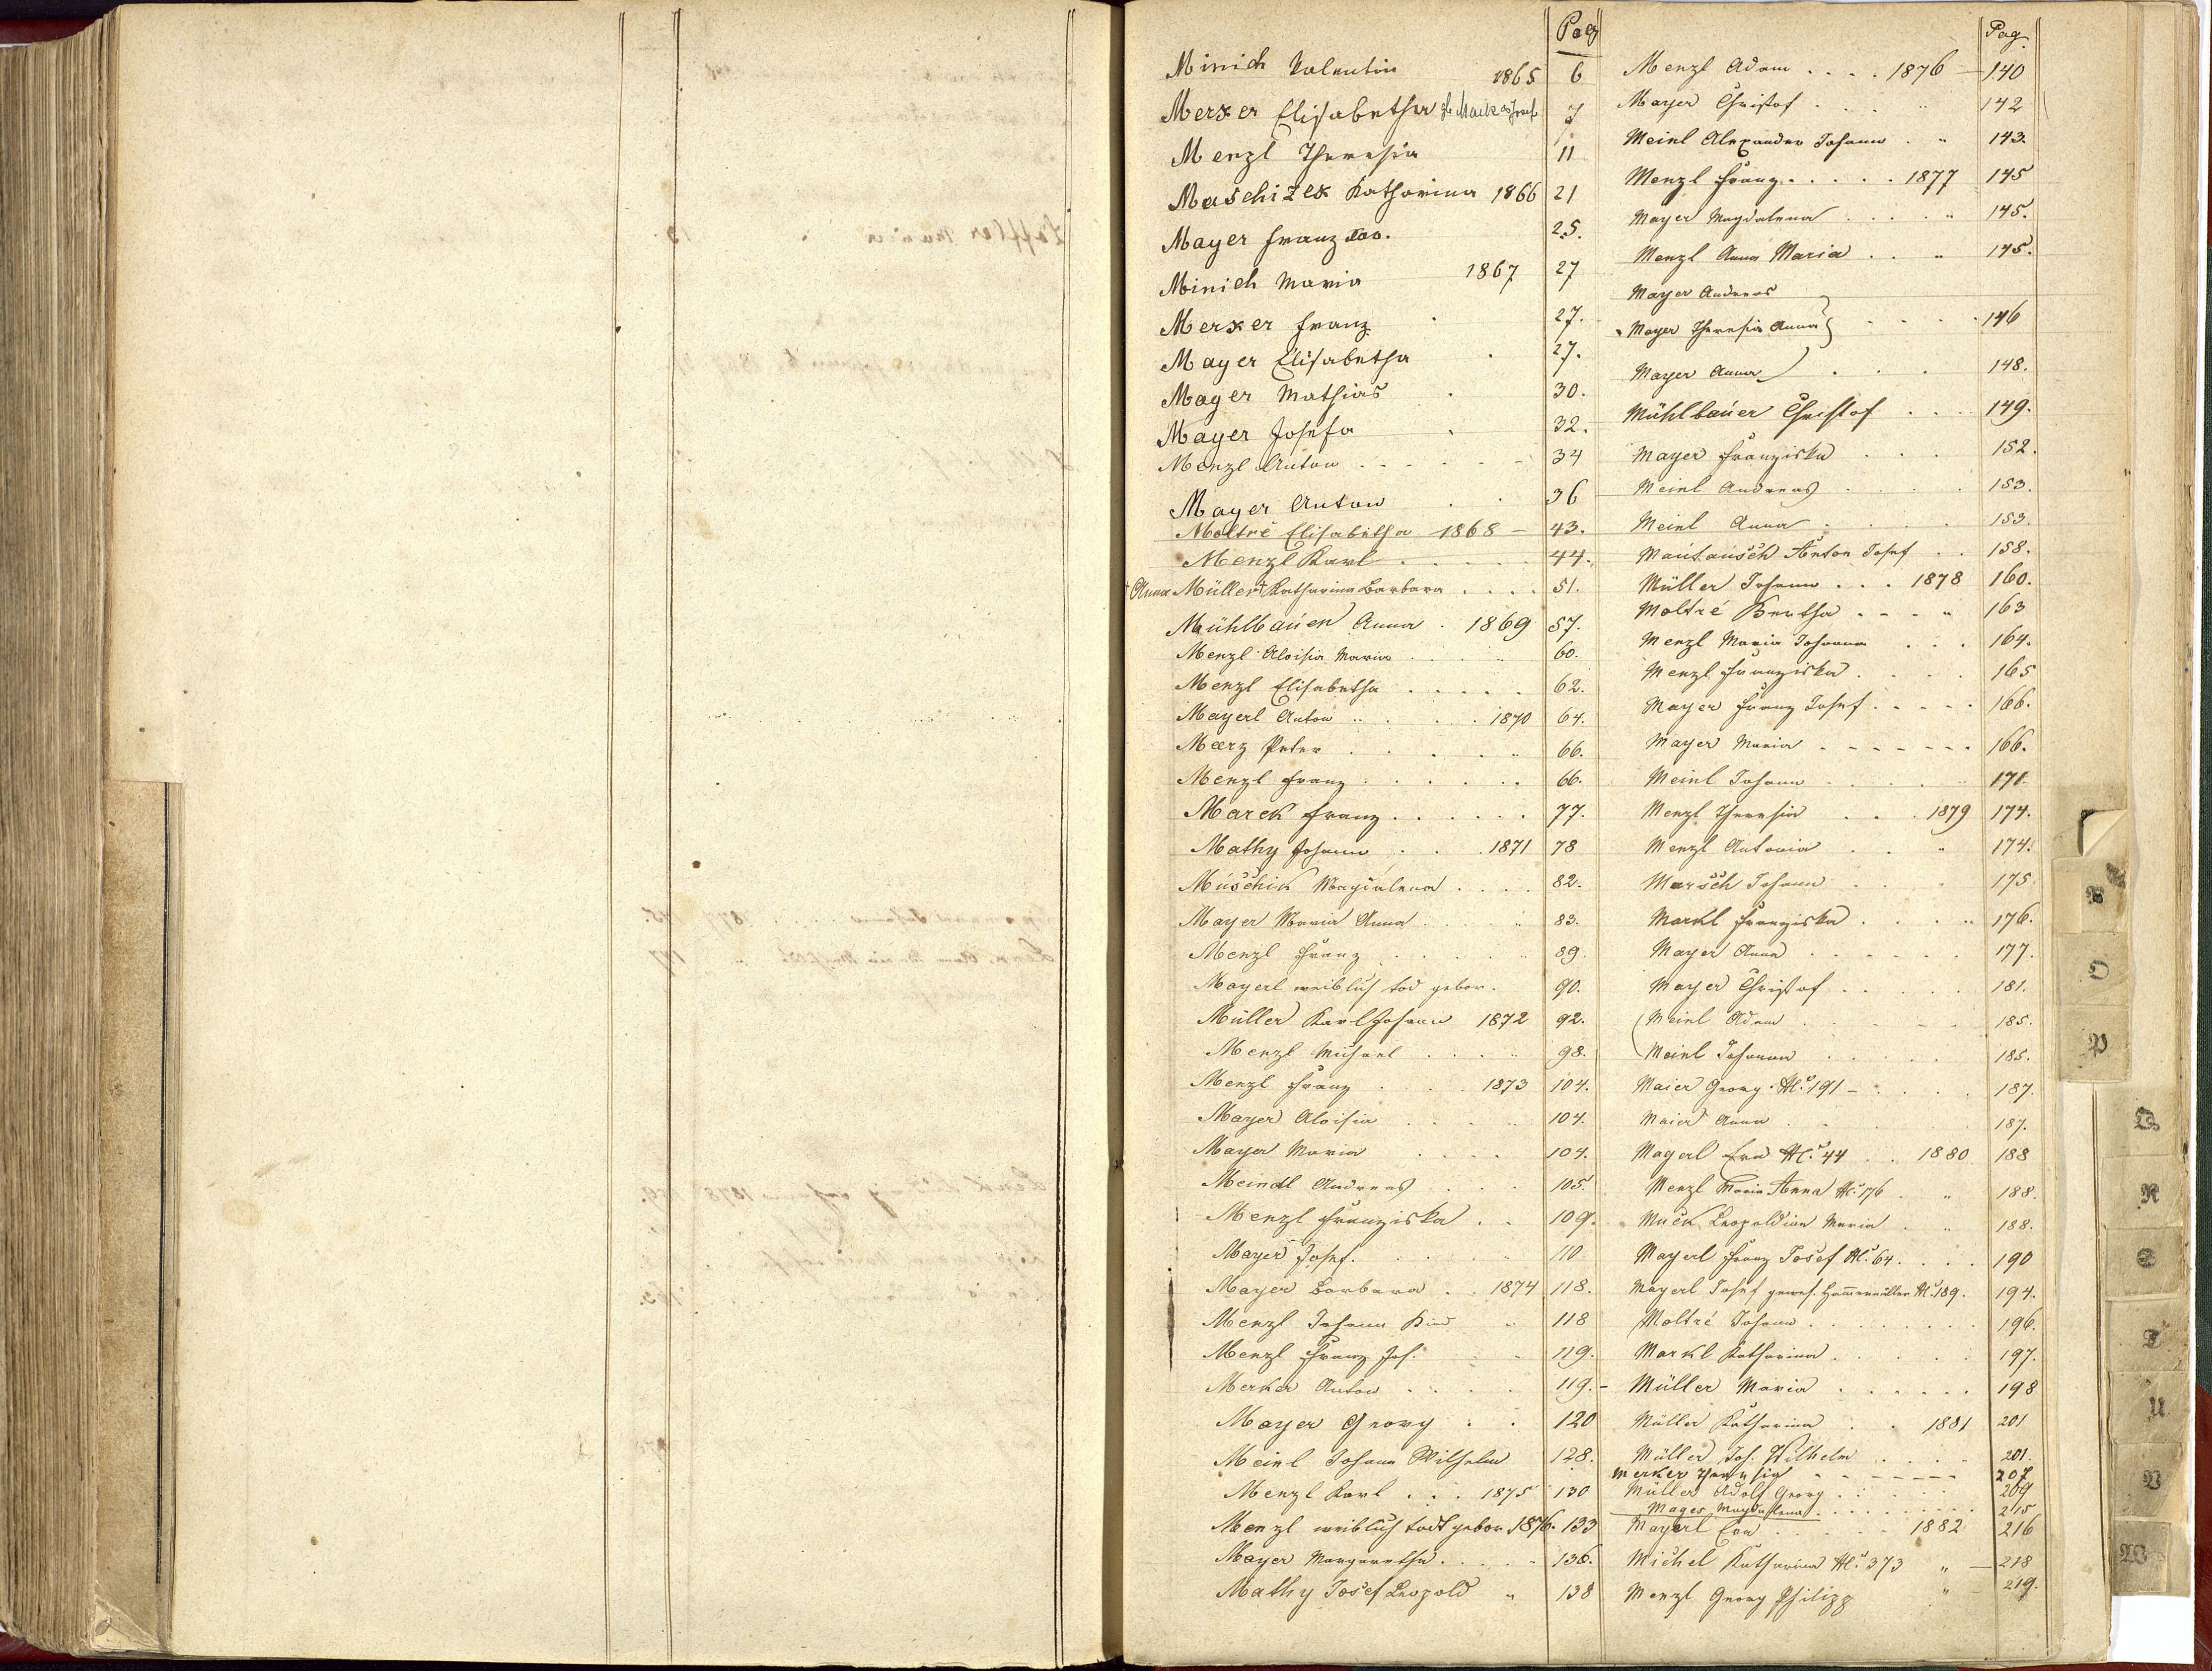 Pag
Minich Valentin 1865 6
Merker Elisabetha 7
Menzl Theresia 11
Maschizek Katharina 1866 21
Mayer Franz 25.
Minich Maria 1867 27
Merker Franz 27.
Mayer Elisabetha 27.
Mayer Mathias 30.
Mayer Josefa 32.
Menzl Anton 34
Mayer Anton 36
Moltré Elisabetha 1868 43.
Menzl Karl 44.
† Anna Müller † Katharina Barbara 51.
Mühlbauer Anna 1869 57.
Menzl Aloisia Maria 60.
Menzl Elisabetha 62.
Mayerl Anton 1870 64.
Maerz Peter 66.
Menzl Franz 66.
Marek Franz 77.
Mathy Johann 1871 78
Muschik Magdalena 82.
Mayer Maria Anna 83.
Menzl Franz 89.
Mayerl weiblich tod gebor. 90.
Müller Karl Johann 1872 92.
Menzl Michael 98.
Menzl Franz 1873 104.
Mayer Aloisia 104.
Mayer Maria 104.
Meindl Andreas 105.
Menzl Franziska 109.
Mayer Josef. 110
Mayer Barbara 1874 118.
Menzl Johann Kind " 118
Menzl Franz Jos. 119.
Merker Anton 119.
Mayer Georg 120
Meinl Johann Wilhelm 128.
Menzl Karl 1875 130
Menzl weiblich todt gebor. 1876. 133
Mayer Margaretha 136.
Mathy Josef Leopold " 138
Pag.
Menzl Adam 1876 140
Mayer Christof " 142
Meinl Alexander Johann " 143.
Menzl Franz 1877 145
Mayer Magdalena " 145.
Menzl Anna Maria " 145.
Mayer Andreas
Mayer Theresia Anna } 146
Mayer Anna 148.
Mühlbauer Christof 149.
Mayer Franziska 152.
Meinl Andreas 153.
Meinl Anna 153.
Mautausch Anton Josef 158.
Müller Johann 1878 160.
Moltré Bertha " 163
Menzl Maria Johanna 164.
Menzl Franziska 165
Mayer Franz Josef 166.
Mayer Maria 166.
Meinl Johann 171
Menzl Theresia 1879 174.
Menzl Antonia " 174.
Marsch Johann " 175
Markl Franziska " 176.
Mayer Anna 177.
Mayer Christof 181.
Meinl Adam 185.
Meinl Johanna 185.
Maier Georg N. 191 187.
Maier Anna 187.
Mayerl Eva N. 44 1880 188
Menzl Maria Anna N. 176 " 188.
Muck Leopoldine Maria " 188.
Mayerl Franz Josef N. 64 190
Mayerl Josef gewes. Hammermüller N. 189. 194.
Moltré Johann 196.
Markl Katharina 197.
Müller Maria 198
Müller Katharina 1881 201
Müller Joh. Wilhelm 201.
Merker Theresia 207
Müller Adolf Georg 209
Mages Magdalena 215
Mayerl Eva 1882 216
Michel Katharina N. 373 " 218
Menzl Georg Philipp " 219.
O
P
Q
R
S
T
U
V
W